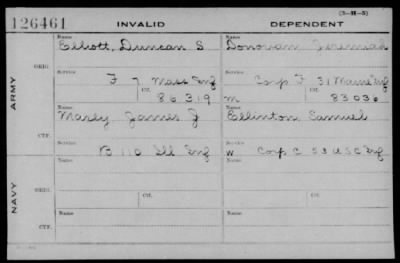 (3-H-5)
126461 INVALID DEPENDENT
Name Name
Elliott, Duncan S Donovan Jeremiah
ORIG.
Service Service
F 7 Mass Inf Corp F 31 Maine Inf
Ctf. Ctf.
86319 m 83036
ARMY
Name Name
Marly James J Ellinton Samuel
CTF.
Service Service
B 110 Ill Inf W Corp C 53 U S C Inf
Name Name
ORIG.
Service Ctf. Service Ctf.
NAVY
Name Name
CTF.
Service Service